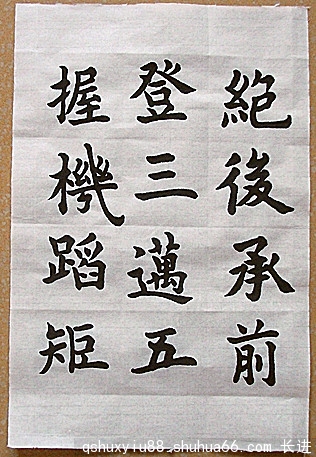 絕後承前
登三邁五
握機蹈矩
qshuxyiu88.shuhua66.com 长进